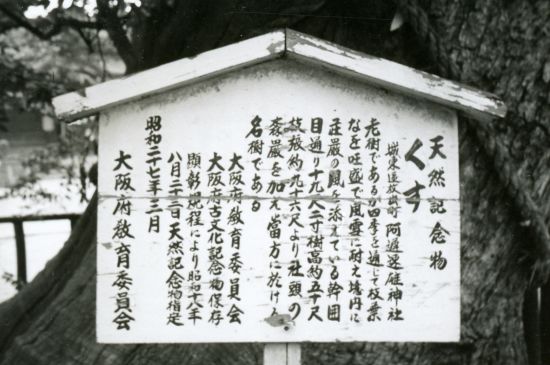 天然記念物
くす
城東區放出町 阿遅速雄神社
老樹であるが四季を通じて枝葉
なを旺盛で風雲に耐え境内に
荘厳の風を添えている幹囲
目通り十九尺二寸樹高約五十尺
枝張約九十尺より社頭の
森厳を加え當方に於ける
名樹である
大阪府教育委員会
大阪府古文化記念物保存
顕彰規程により昭和十八年
八月二十二日天然記念物指定
昭和二十七年三月
大阪府教育委員会